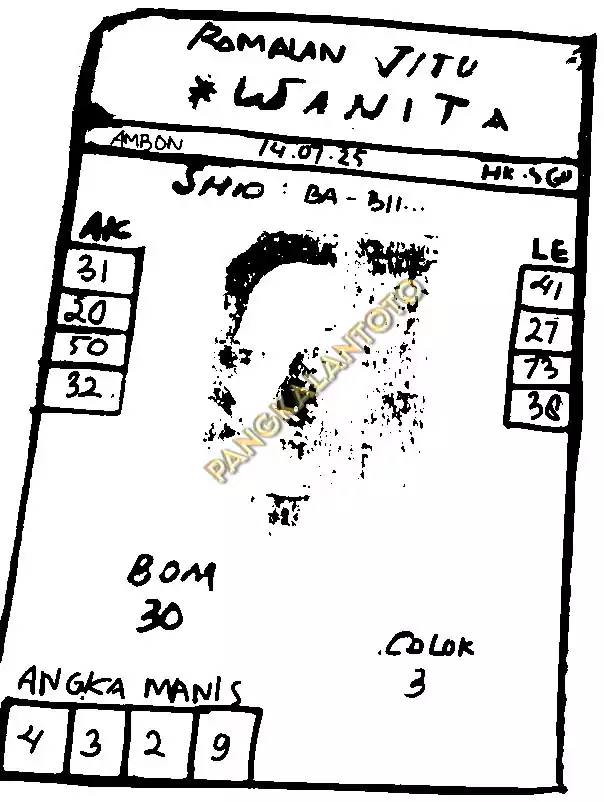 ROMALAN JITU
* WANITA
AMBON 14.07.25 HK.SGP
SHIO : BA - BII...
AK
31
20
50
32
LE
41
27
73
38
PANGKALANTOTO
BOM
30
COLOK
3
ANGKA MANIS
4 3 2 9